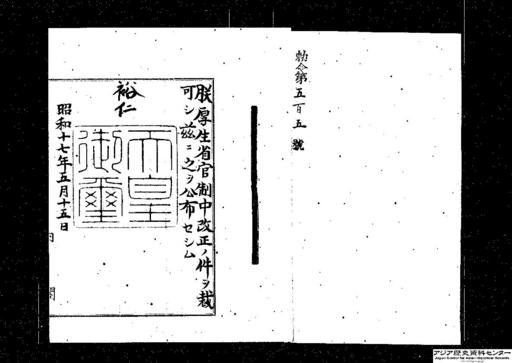 勅令第五百五號
朕厚生省官制中改正ノ件ヲ裁
可シ茲ニ之ヲ公布セシム
裕仁
天皇
御璽
昭和十七年五月十五日
アジア歴史資料センター
Japan Center for Asian Historical Records